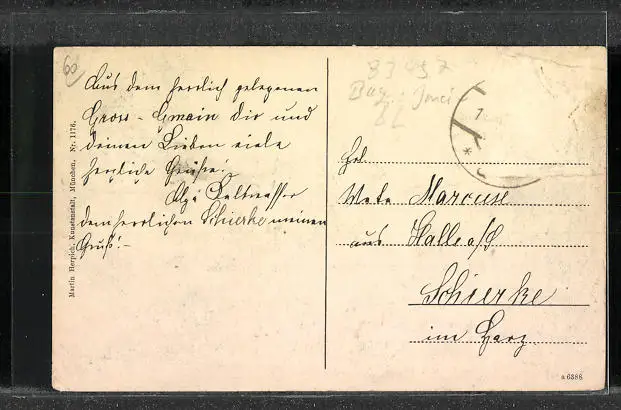 60
Aus dem herrlich gelegenen
Gross-Gmain dir und
deinen Lieben viele
herzliche Grüße!
dem herrlichen Schierke meinen
Gruß! –
Martin Herpich, Kunstanstalt, München. Nr. 1176.
83457
Bay.
Frl.
Meta Marcuse
aus Halle a/S
Schierke
im Harz.
a 6388